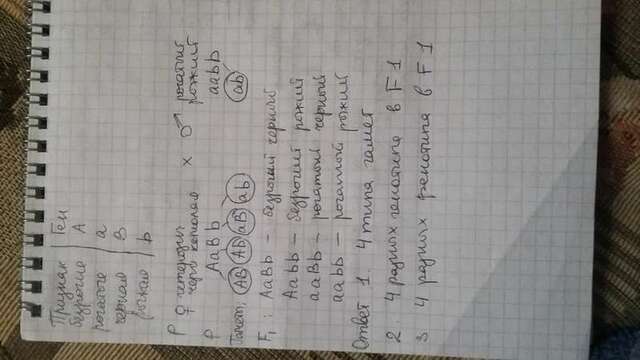 Признак | Ген
безрогие | A
рогатые | a
черная | B
рыжая | b
P ♀ гетерозиг черн комолая × ♂ рогатый рыжий
P AaBb aabb
Гаметы: AB Ab aB ab ab
F1: AaBb – безрогий черный
Aabb – безрогий рыжий
aaBb – рогатый черный
aabb – рогатый рыжий
Ответ 1. 4 типа гамет
2. 4 разных генотипа в F1
3 4 разных фенотипа в F1